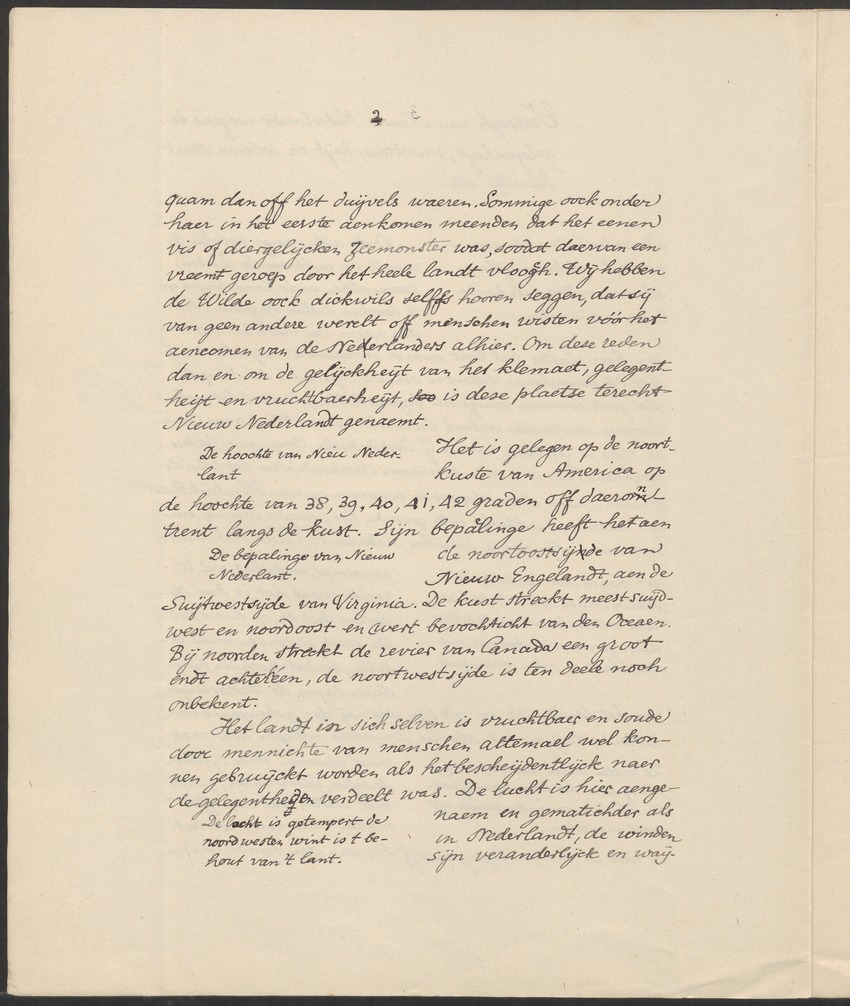 2
quam dan off het duijvels waeren. Sommige oock onder
haer in het eerste aenkomen meenden dat het eenen
vis of diergelijcken zeemonster was, soodat daervan een
vreemt geroep door het heele landt vloogh. Wij hebben
de Wilde oock dickwils selffs hooren seggen, dat sij
van geen andere werelt off menschen wisten vóór het
aencomen van de Nederlanders alhier. Om dese reden
dan en om de gelijckheijt van het klemaet, gelegent-
heijt en vruchtbaerheijt, is dese plaetse terecht
Nieuw Nederlandt genaemt.
De hoochte van Nieu Neder-
lant
Het is gelegen op de noort-
kuste van America op
de hoochte van 38, 39, 40, 41, 42 graden off daeromt
trent langs de kust. Sijn bepalinge heeft het aen
De bepalinge van Nieuw
Nederlant.
de noortoostsijde van
Nieuw Engelandt, aen de
Suijtwestsijde van Virginia. De kust streckt meest suijd-
west en noordoost en wert bevochticht van den Oceaen.
Bij noorden streckt de revier van Canada een groot
endt achterheen, de noortwestsijde is ten deele noch
onbekent.
Het landt in sich selven is vruchtbaer en soude
door mennichte van menschen altemael wel kon-
nen gebruijckt worden als het bescheijdentlijck naer
de gelegentheden verdeelt was. De lucht is hier aenge-
De lucht is getempert de
noordwesten wint is t be-
hout van 't lant.
naem en gematichder als
in Nederlandt, de winden
sijn veranderlijck en waij-